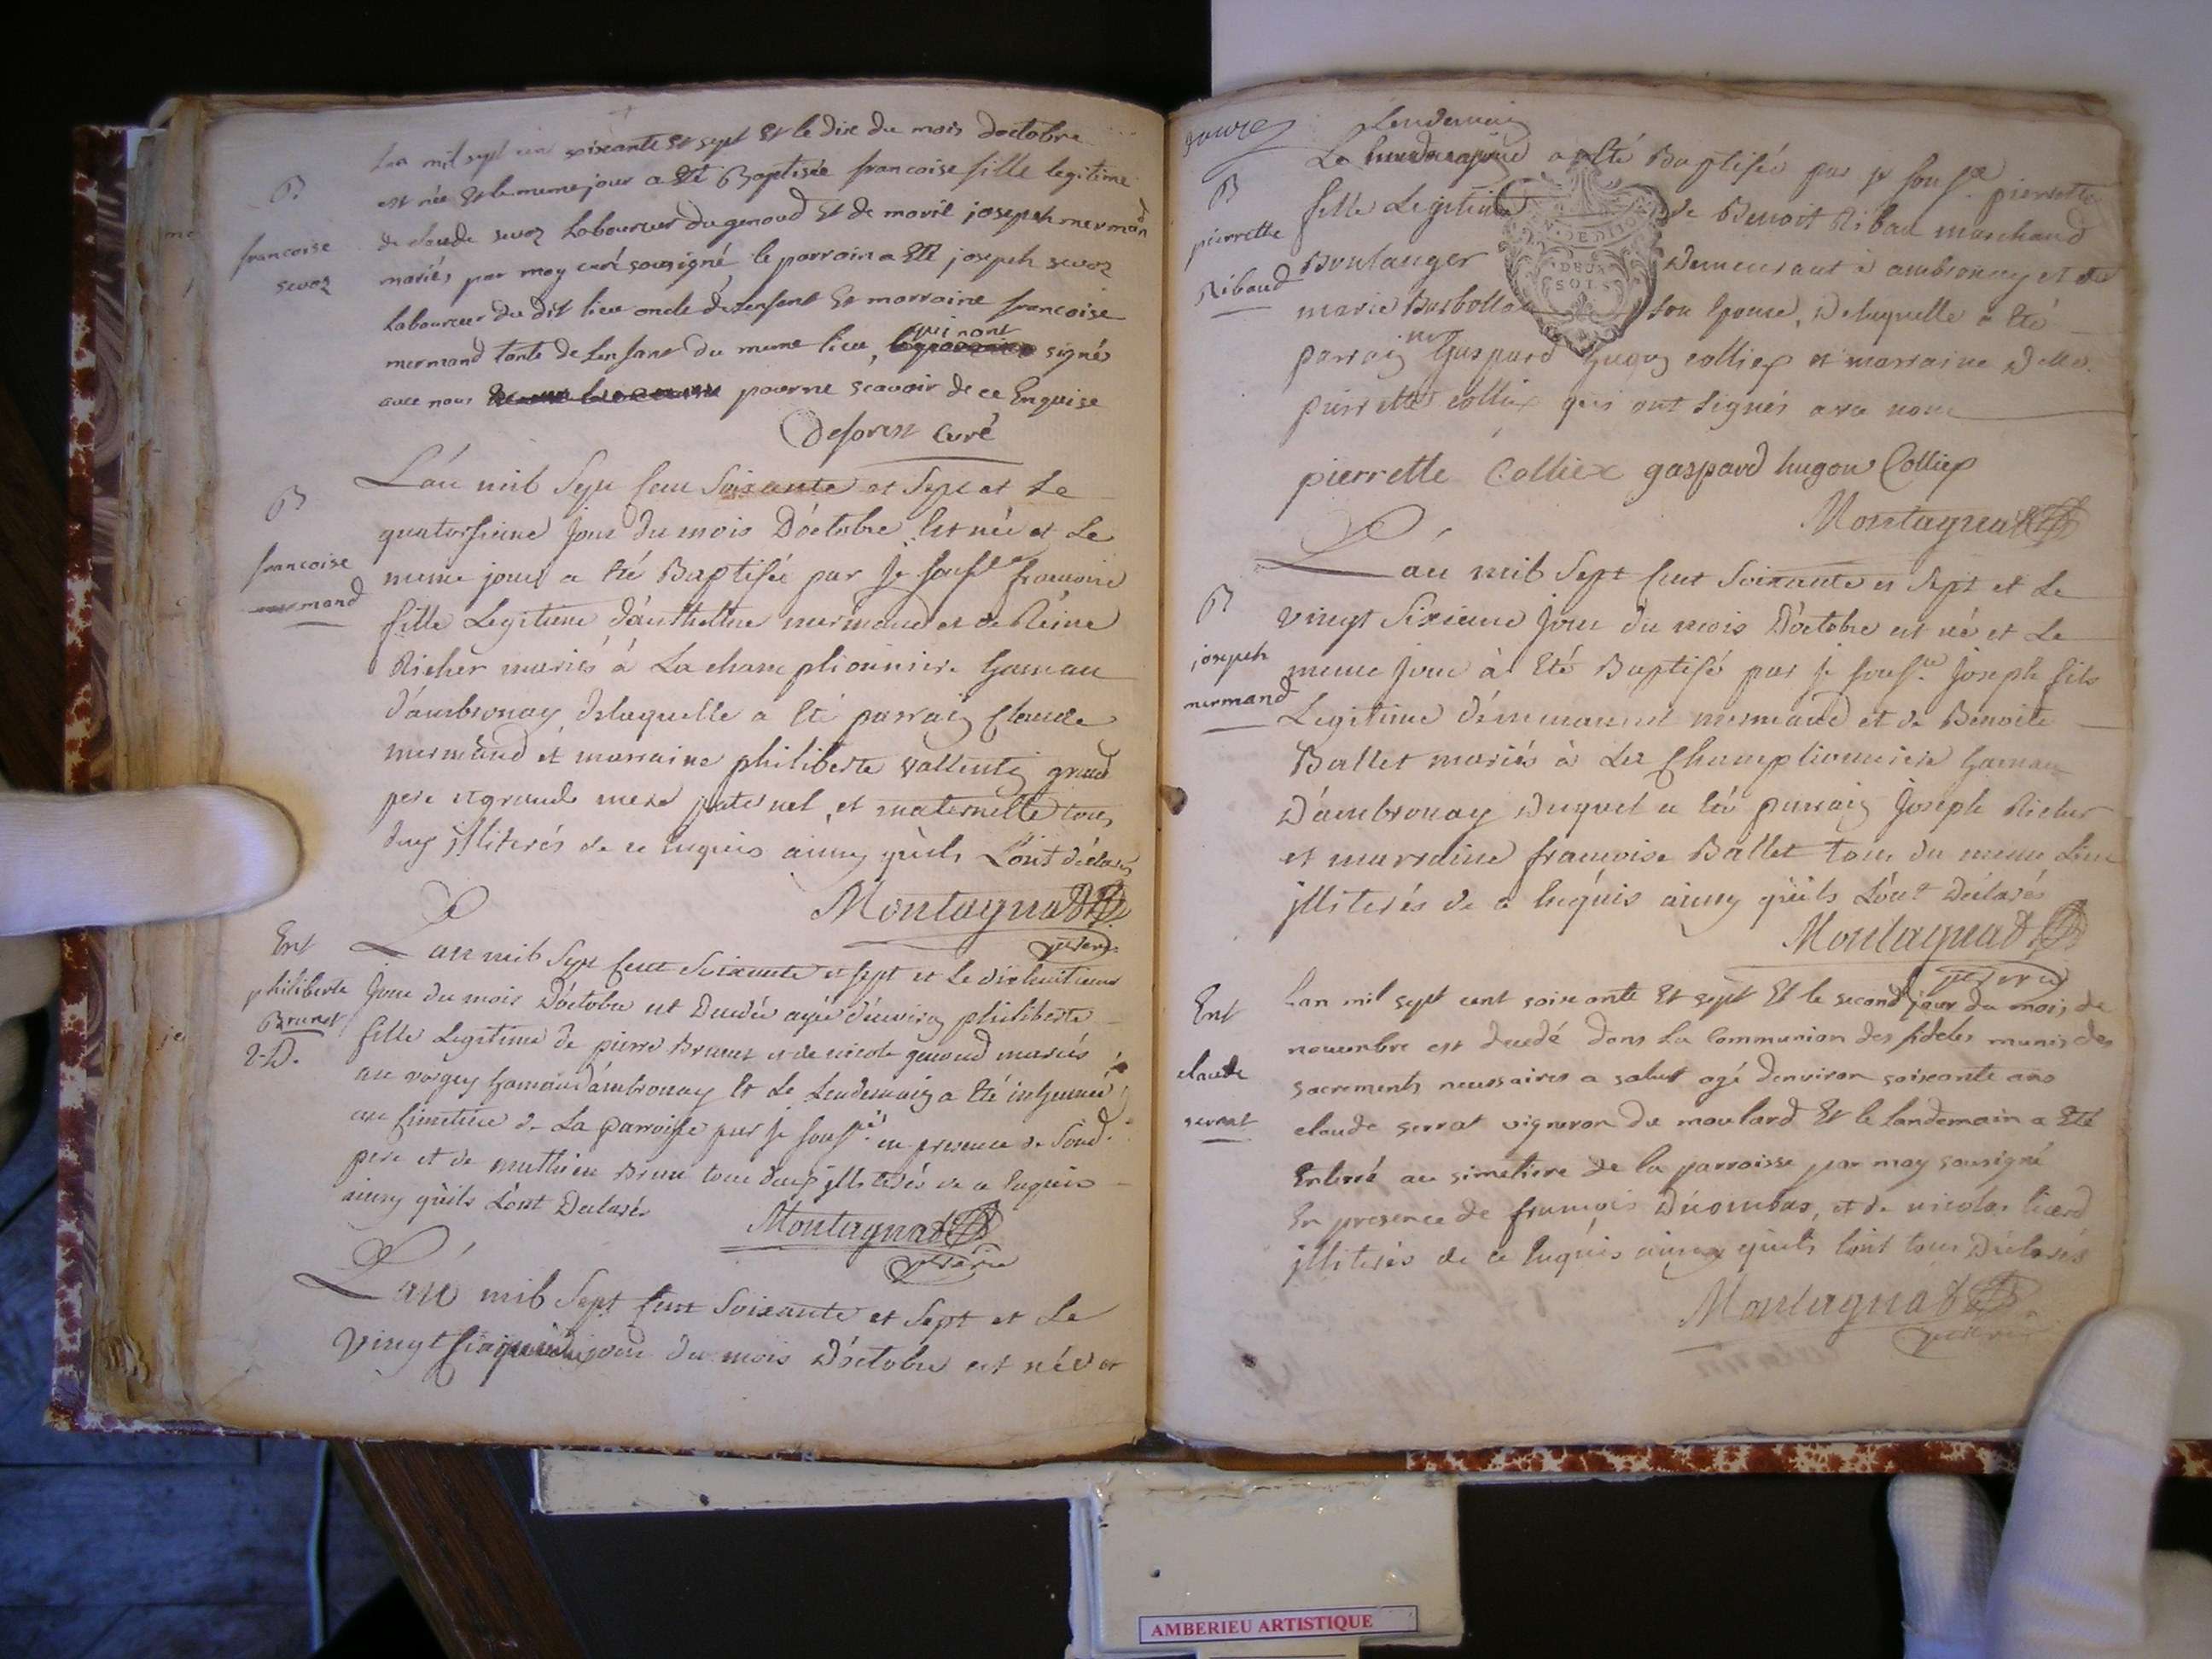 Lan mil sept cent soixante Et sept Et le dix du mois doctobre
est née Et le meme jour a Eté Baptisée francoise fille legitime
B
francoise
sevoz
de claude sevoz Laboureur du genoud Et de marie josephe mermand
mariés par moy curé sousigné le parrain a Eté joseph sevoz
Laboureur du dit lieu oncle de Lenfant Et marraine francoise
mermand tante de Lenfant du meme lieu, qui nont signés
avec nous pour ne scavoir de ce Enquise
Deforest Curé
B
francoise
mermand
L'an mil Sept Cent Soixante et Sept et Le
quatorsieme jour du mois D'octobre Est née et Le
meme jour a Eté Baptisée par Je Sousé francoise
fille Legitime d'anthelme mermand et de Reine
Richer mariés à La championniere hameau
d'ambronay, delaquelle a Eté parrain Claude
mermand et marraine philiberte vallentin grand
pere et grande mere paternel, et maternelle tous
deux jlliterés de ce Enquis ainsy qu'ils L'ont déclarés
Montagnat
vicaire
Ent
philiberte
Brunet
2-D.
L an mil Sept Cent Soixante et sept et Le dixhuitieme
Jour du mois D'octobre est Decedée agée d'environ philiberte
fille Legitime de pierre Brunet et de nicole genoud mariés
au hameau d'ambronay Et Le Lendemain a Eté inhumée
au Cimetiere de La parroisse par Je Sousé en presence de Sond.
pere et de mathieu Brun tous deux jlliterés de ce Enquis
ainsy qu'ils L'ont Declarés
Montagnat
vicaire
L'an mil Sept Cent Soixante et Sept et Le
vingt Cinquieme jour du mois D'octobre est née et
Lendemain
Le a eté Baptisée par je sousé pierrette
B
pierrette
Ribaud
fille Legitime de Benoit Ribau marchand
Boulanger Demeurant à ambronay et de
DEUX
SOLS
marie son Epouse, Delaquelle a Eté
parrain mr Gaspard hugon colliex et marraine Delle
pierrette colliex qui ont Signés avec nous
pierrette Colliex gaspard hugon Colliex
Montagnat
L'an mil Sept Cent Soixante et Sept et Le
B
joseph
mermand
vingt Sixieme Jour du mois D'octobre est né et Le
meme Jour à Eté Baptisé par Je sousé Joseph fils
Legitime d'emmanuel mermand et de Benoite
Ballet mariés à La Championniere hameau
D'ambronay Duquel a Eté parrain Joseph Richer
et marraine francoise Ballet tous du meme Lieu
jlliterés de ce Enquis ainsy qu'ils L'ont Declarés
Montagnat
vicaire
Ent
claude
serrat
Lan mil sept cent soixante Et sept Et le second jour du mois de
novembre est decedé dans La Communion des fideles munis des
sacrements necessaires a salut agé denviron soixante ans
claude serrat vigneron du moulard Et le landemain a Eté
Enterré au simetiere de la parroisse par moy sousigné
En presence de françois Ducombas, et de nicolas
jlliterés de ce Enquis ainsy qu'ils l'ont tous Déclarés
Montagnat
vicaire
AMBERIEU ARTISTIQUE